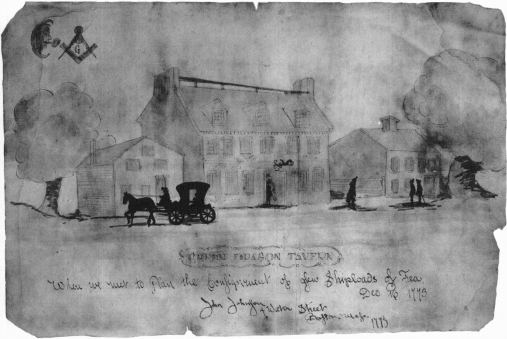 G
GREEN DRAGON TAVERN
Where we met to Plan the Consignment of few Shiploads of Tea
Dec 16 1773
John Johnson Water Street
Boston 1773